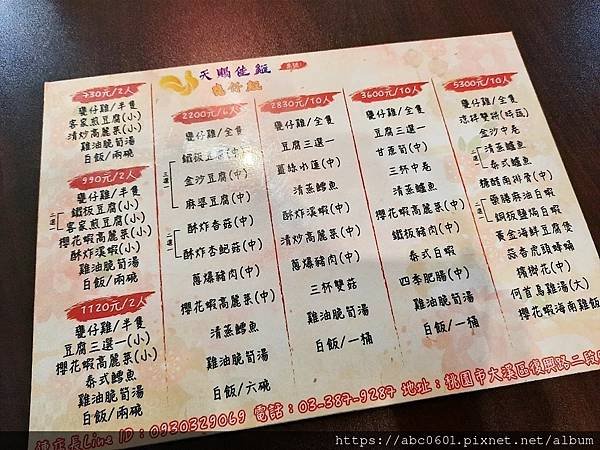 天賜佳緣
730元/2人
甕仔雞/半隻
客家煎豆腐(小)
清炒高麗菜(小)
雞油脆筍湯
白飯/兩碗
990元/2人
甕仔雞/半隻
二選一
鐵板豆腐(小)
客家煎豆腐(小)
櫻花蝦高麗菜(小)
酥炸溪蝦(小)
雞油脆筍湯
白飯/兩碗
1120元/2人
甕仔雞/半隻
豆腐三選一(小)
櫻花蝦高麗菜(小)
泰式鱈魚
雞油脆筍湯
白飯/兩碗
2200元/6人
甕仔雞/全隻
鐵板豆腐(中)
金沙豆腐(中)
麻婆豆腐(中)
酥炸香菇(中)
酥炸杏鮑菇(中)
蔥爆豬肉(中)
櫻花蝦高麗菜(中)
清蒸鱈魚
雞油脆筍湯
白飯/六碗
2830元/10人
甕仔雞/全隻
豆腐三選一
薑絲水蓮(中)
清蒸鱈魚
酥炸溪蝦(中)
清炒高麗菜(中)
蔥爆豬肉(中)
三杯雙菇
雞油脆筍湯
白飯/一桶
3600元/10人
甕仔雞/全隻
豆腐三選一
甘蔗筍(中)
三杯中卷
清蒸鱈魚
櫻花蝦高麗菜(中)
鐵板豬肉(中)
泰式白蝦
四季肥腸(中)
雞油脆筍湯
白飯/一桶
5300元/10人
甕仔雞/全隻
涼拌雙拼(時蔬)
金沙中卷
清蒸鱸魚
泰式鱸魚
糖醋南排骨(中)
藥膳麻油白蝦
鋼板鹽焗白蝦
黃金海鮮豆腐煲
蒜香虎頭蜂蛹
檳榔花(中)
何首烏雞湯(大)
櫻花蝦海南雞飯
連莊長Line ID：0930329069 電話：03-387-9287 地址：桃園市大溪區復興路二段
https://abc0601.pixnet.net/album